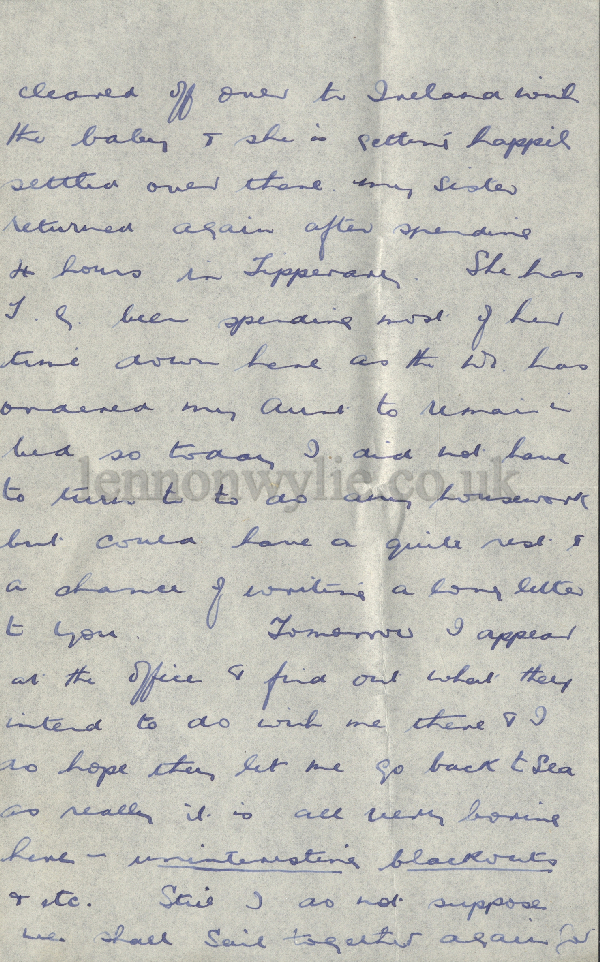 cleared off over to Ireland with
the baby & she is getting happily
settled over there. My sister
returned again after spending
4 hours in Tipperary. She has
T. G. been spending most of her
time down here as the Dr. has
ordered my Aunt to remain in
bed so today I did not have
to turn to to do any housework
but could have a quite rest &
a chance of writing a long letter
to you. Tomorrow I appear
at the office & find out what they
intend to do with me there & I
do hope they let me go back to Sea
as really it is all very boring
here - uninteresting blackouts
& etc. Still I do not suppose
we shall sail together again for
lennonwylie.co.uk